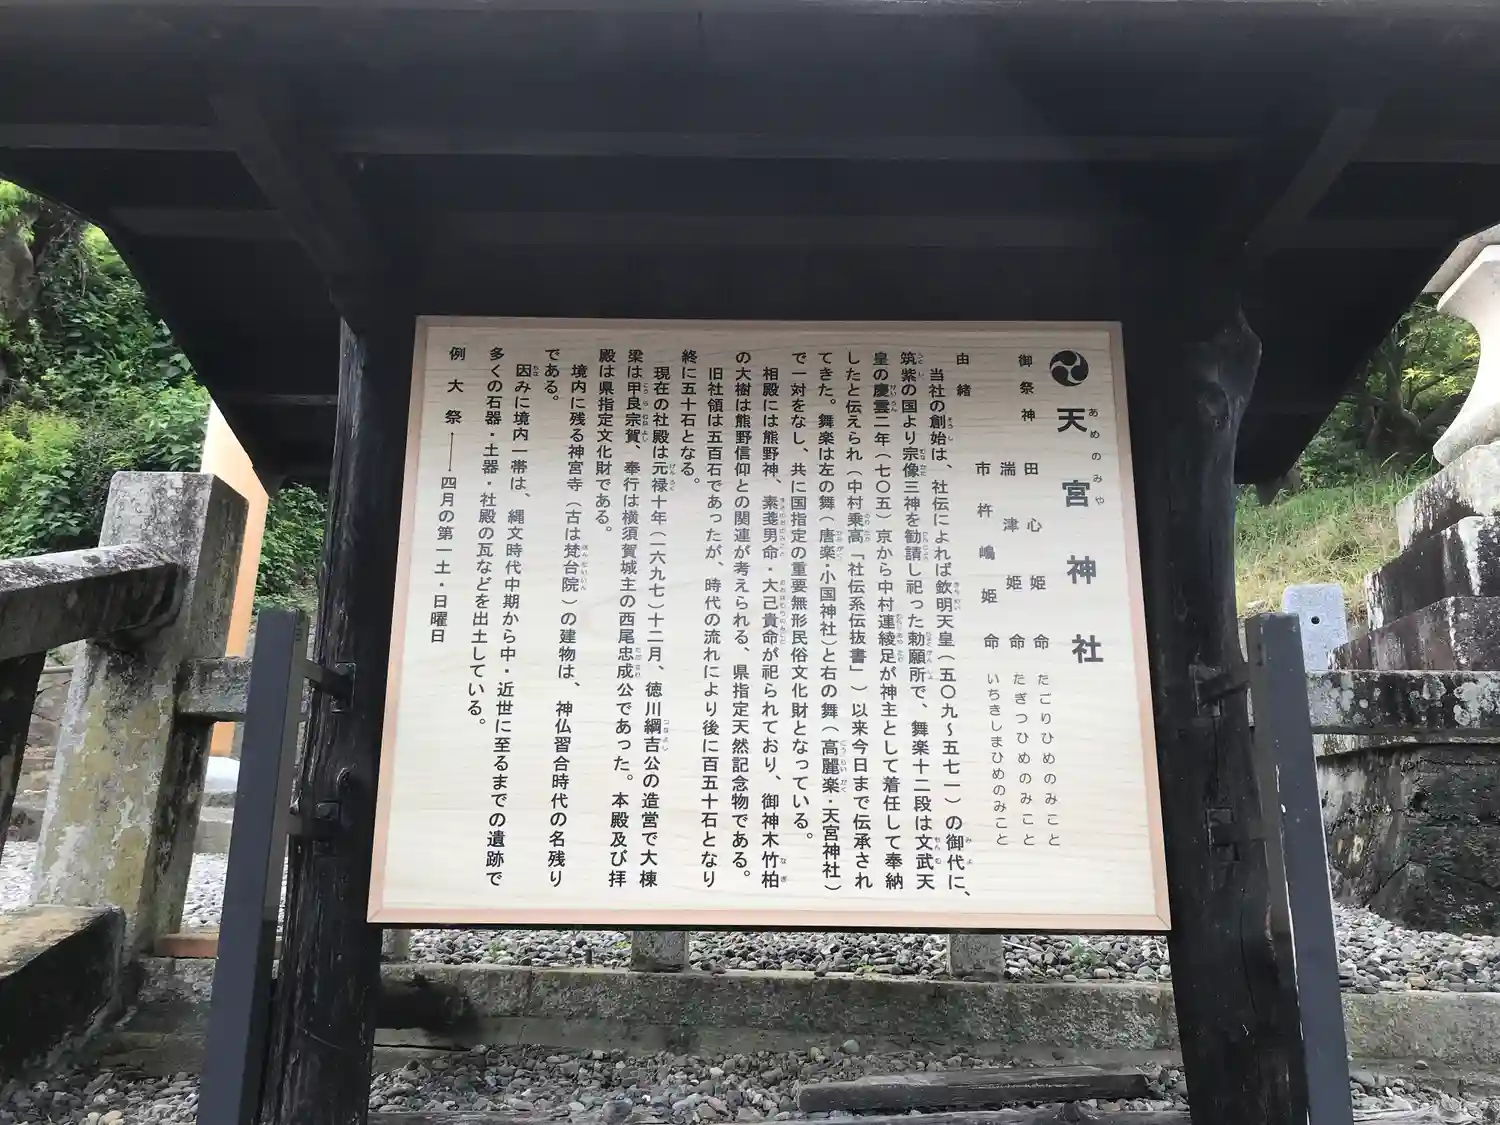 天宮神社
あめのみや
御祭神
田心姫命 たごりひめのみこと
湍津姫命 たぎつひめのみこと
市杵嶋姫命 いちきしまひめのみこと
由緒
当社の創始は、社伝によれば欽明天皇（五〇九～五七一）の御代に、
筑紫の国より宗像三神を勧請し祀った勅願所で、舞楽十二段は文武天
皇の慶雲二年（七〇五）京から中村連綾足が神主として着任して奉納
したと伝えられ（中村乗高「社伝系伝抜書」）以来今日まで伝承され
てきた。舞楽は左の舞（唐楽・小国神社）と右の舞（高麗楽・天宮神社）
で一対をなし、共に国指定の重要無形民俗文化財となっている。
相殿には熊野神、素戔男命・大己貴命が祀られており、御神木竹柏
の大樹は熊野信仰との関連が考えられる、県指定天然記念物である。
旧社領は五百石であったが、時代の流れにより後に百五十石となり
終に五十石となる。
現在の社殿は元禄十年（一六九七）十二月、徳川綱吉公の造営で大棟
梁は甲良宗賀、奉行は横須賀城主の西尾忠成公であった。本殿及び拝
殿は県指定文化財である。
境内に残る神宮寺（古は梵台院）の建物は、神仏習合時代の名残り
である。
因みに境内一帯は、縄文時代中期から中・近世に至るまでの遺跡で
多くの石器・土器・社殿の瓦などを出土している。
例大祭──四月の第一土・日曜日